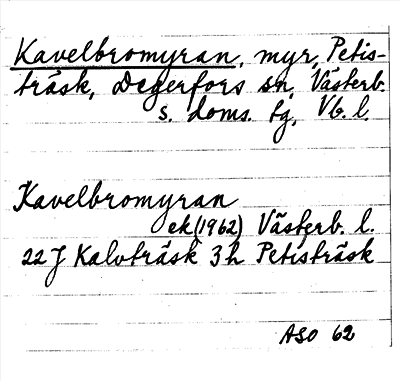 Kavelbromyran, myr, Petis-
träsk, Degerfors sn, Västerb.
s. doms. tg, Vb. l.
Kavelbromyran
ek (1962) Västerb. l.
22 J Kalvträsk 3h Petisträsk
ASO 62